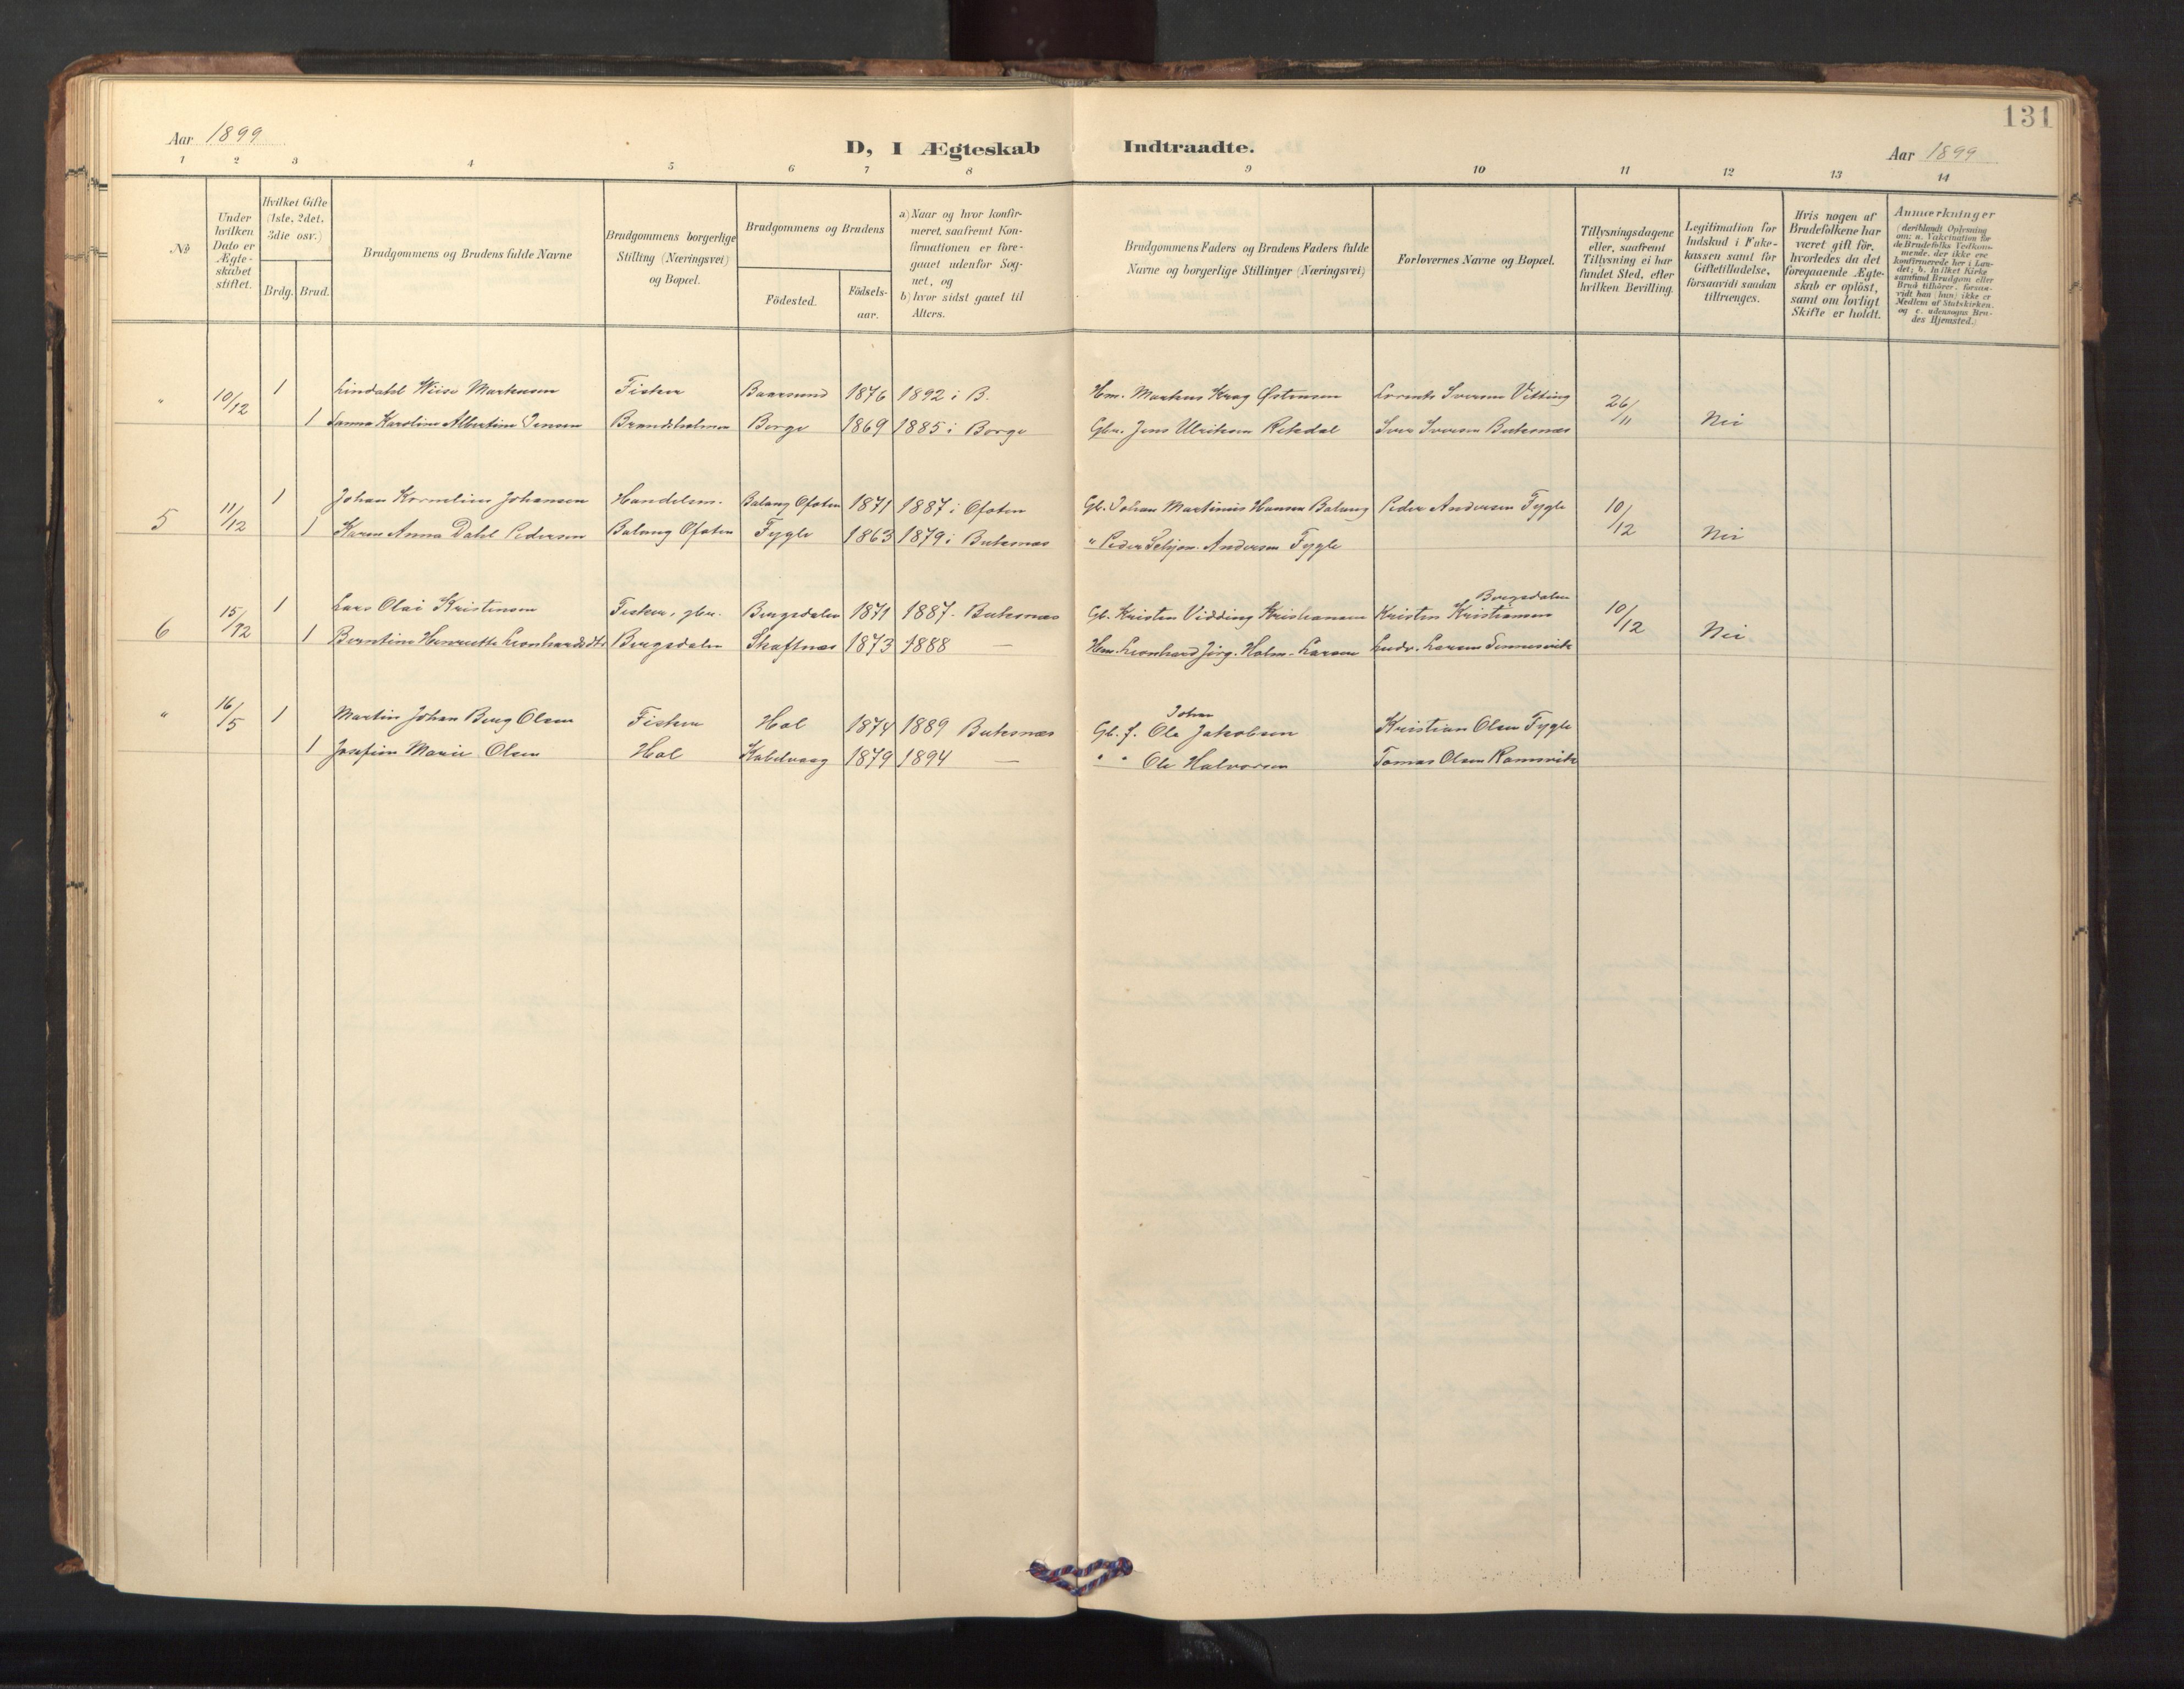 131
Aar 1899
D, I Ægteskab Indtraadte.
Aar 1899
1 2 3 4 5 6 7 8 9 10 11 12 13 14
№
Under hvilken Dato er Ægteskabet stiftet.
Hvilket Gifte (1ste, 2det, 3die osv.)
Brdg. Brud.
Brudgommens og Brudens fulde Navne
Brudgommens borgerlige Stilling (Næringsvei) og Bopæl.
Brudgommens og Brudens
Födested.
Födselsaar.
a) Naar og hvor konfirmeret, saafremt Konfirmationen er foregaaet udenfor Sognet, og
b) hvor sidst gaaet til Alters.
Brudgommens Faders og Brudens Faders fulde Navne og borgerlige Stillinger (Næringsvei)
Forlovernes Navne og Bopæl.
Tillysningsdagene eller, saafremt Tillysning ei har fundet Sted, efter hvilken Bevilling.
Legitimation for Indskud i Enkekassen samt for Giftetilladelse, forsaavidt saadan tiltrænges.
Hvis nogen af Brudefolkene har været gift för, hvorledes da det foregaaende Ægteskab er oplöst, samt om lovligt Skifte er holdt.
Anmærkninger (deriblandt Oplysning om: a. Vakcination for de Brudefolks Vedkommende, der ikke ere konfirmerede her i Landet; b. hvilket Kirkesamfund Brudgom eller Brud tilhörer, forsaavidt han (hun) ikke er Medlem af Statskirken, og c. udensogns Brudes Hjemsted.)
" 10/12 1 Lindahl Wiise Martensen Fisker 1876 1892 i B. Hm. Martens Krag Østensen Lorents Iversen Vitting 26/11 Nei
1 Karoline Albertine Jensen Brandsholmen Borge 1869 1885 i Borge Gbr. Jens Ulriksen Iver Iversen Buksnæs
5 11/12 1 Johan Kornelius Johansen Handelsm. Balang Ofoten 1871 1887 i Ofoten Gb. Johan Martinus Hansen Balang Peder Andersen Fygle 10/12 Nei
1 Karen Anna Dahl Pedersen Balang Ofoten Fygle 1863 1879 i Buksnæs " Peder Andersen Fygle
6 15/12 1 Lars Olai Kristensen Fisker, gbr. Bergsdalen 1871 1887 - Buksnæs Gb. Kristen Vidding Kristiansen Kristen Kristiansen Bergsdalen 10/12 Nei
1 Berntine Henriette Leonhardsdtr Bergsdalen Skaftnæs 1873 1888 — Hm. Leonhard Jörg. Holm-Larsen Ludv. Larsen Sennesvik
" 16/5 1 Martin Johan Berg Olsen Fisker Hol 1874 1889 Buksnæs Gb. f. Ole Johan Jakobsen Kristian Olsen Fygle
1 Josefine Marie Olsen Hol Kabelvaag 1879 1894 — " " Ole Halvorsen Tomas Olsen Ramsvik